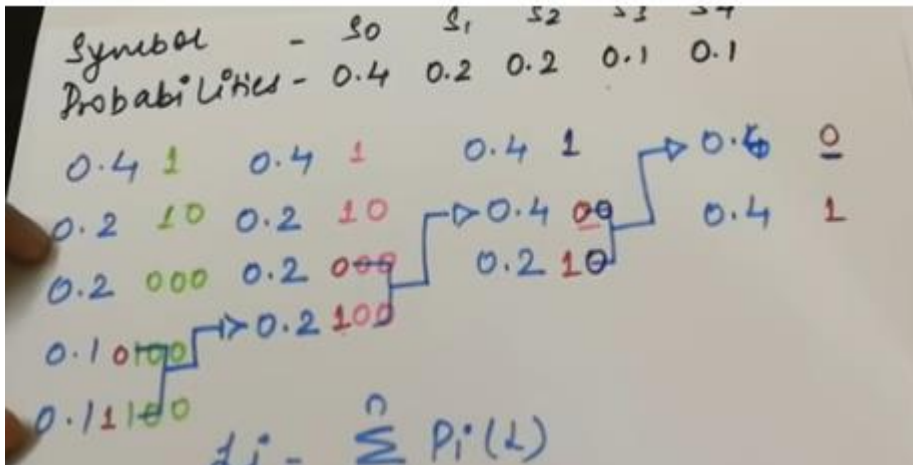 Symbol - S0 S1 S2 S3 S4
Probabilities - 0.4 0.2 0.2 0.1 0.1
0.4 1 0.4 1 0.4 1 0.6 0
0.2 10 0.2 10 0.4 00 0.4 1
0.2 000 0.2 000 0.2 10
0.1 0100 0.2 100
0.1 1100
Li - Σ Pi(L)
n